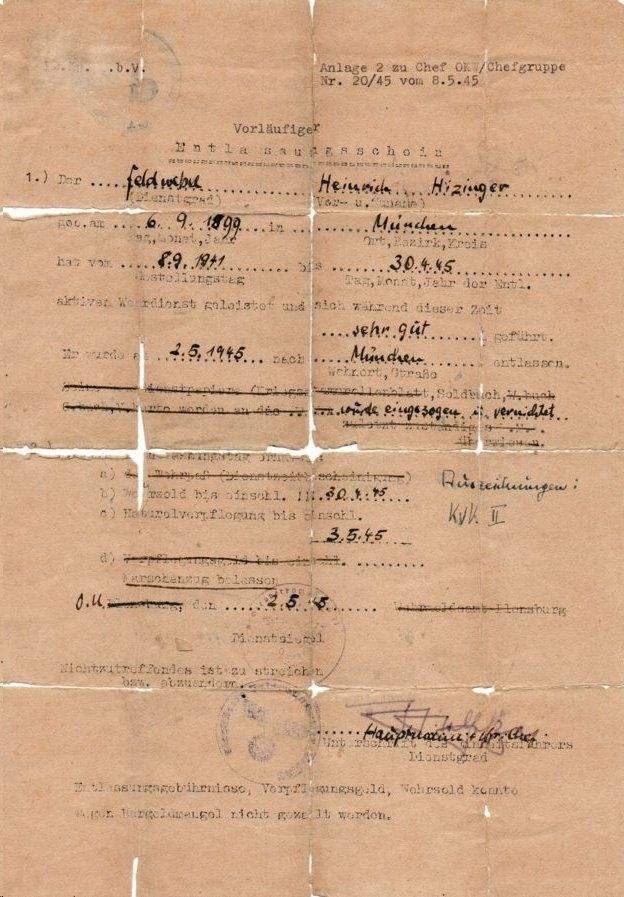 b.V.
Anlage 2 zu Chef OKW/Chefgruppe
Nr. 20/45 vom 8.5.45
Vorläufiger
Entlassungsschein
1.) Der .... Feldwebel .... Heinrich Hizinger ....
(Dienstgrad) (Vor- u. Zuname)
geb.am ... 6. 9. 1899 .. in ... München ....
Tag,Monat,Jahr Ort,Bezirk,Kreis
hat vom ... 8.9. 1941 .... bis .... 30.4.45 ....
Gestellungstag Tag,Monat,Jahr der Entl.
aktiven Wehrdienst geleistet und sich während dieser Zeit
.... sehr gut .... geführt.
Er wurde a . 2.5.1945 ... nach ... München .... entlassen.
Wohnort,Straße
Soldbuch, W.buch
werden an das wurde eingezogen u. vernichtet
überwiesen.
a) Wehrpaß (Dienstzeitbescheinigung)
b) Wehrsold bis einschl. 30.4.45
Auszeichnungen:
c) Naturalverpflegung bis einschl.
KVK II
3.5.45
d) Verpflegungsgeld bis einschl. ........
Marschanzug belassen
O.U. Flensburg, den .... 2.5.45 .... Flensburg
Dienstsiegel
Nichtzutreffendes ist zu streichen
bzw. abzuändern.
Hauptmann
Unterschrift des Einheitsführers
Dienstgrad
Entlassungsgebührnisse, Verpflegungsgeld, Wehrsold konnte
wegen Bargeldmangel nicht gezahlt werden.